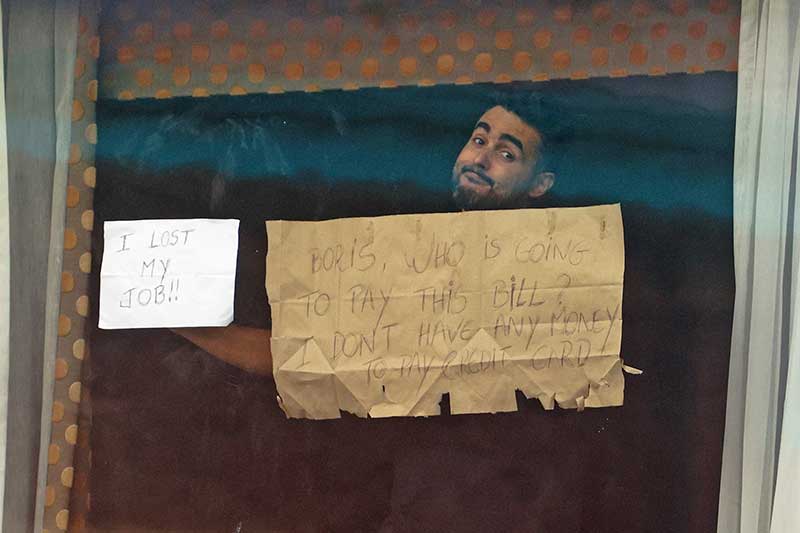 I LOST
MY
JOB!!
BORIS, WHO iS GOING
TO PAY THiS BiLL?
I DON'T HAVE ANY MONEY
TO PAY CREDIT CARD